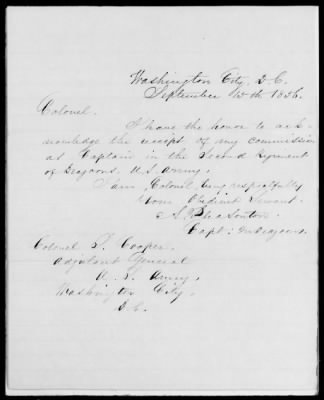 Washington City, D.C.
September 15th 1856.
Colonel.
I have the honor to ack-
nowledge the receipt of my commission
as Captain in the Second Regiment
of Dragoons. U.S. Army.
I am, Colonel very respectfully
Your Obedient Servant.
A. Pleasonton
Capt: 2n Dragoons.
Colonel S. Cooper.
Adjutant General
U. S. Army,
Washington City,
D.C.